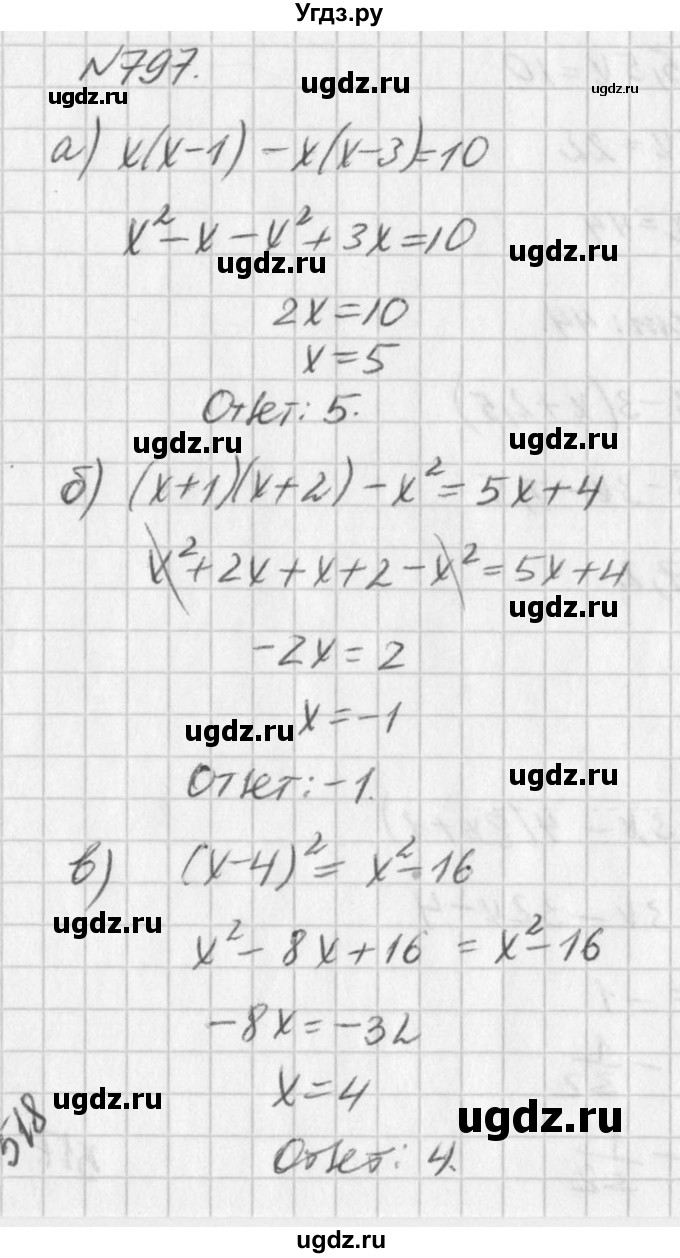 Угдз.ру
№797.
ugdz.ru ugdz.ru ugdz.ru
а) x(x-1) - x(x-3)=10
x² - x - x² + 3x = 10
ugdz.ru ugdz.ru
2x = 10
x = 5
ugdz.ru
Ответ: 5.
ugdz.ru ugdz.ru
б) (x+1)(x+2) - x² = 5x+4
x² + 2x + x + 2 - x² = 5x+4
ugdz.ru
-2x = 2
x = -1
ugdz.ru
Ответ: -1.
ugdz.ru
в) (x-4)² = x² - 16
ugdz.ru
x² - 8x + 16 = x² - 16
-8x = -32
x = 4
ugdz.ru ugdz.ru
518
Ответ: 4.
ugdz.ru